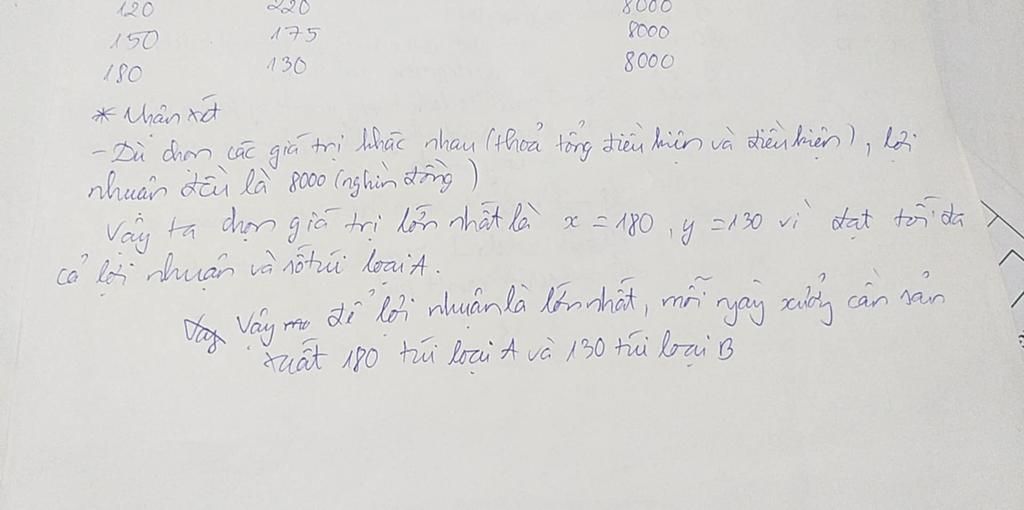 120 220 8000
150 175 8000
180 130 8000
* Nhận xét
- Dù chọn các giá trị khác nhau (thoả tổng điều kiện và điều kiện), lợi
nhuận đều là 8000 (nghìn đồng)
Vậy ta chọn giá trị lớn nhất là x = 180, y = 130 vì đạt tối đa
cả lợi nhuận và số túi loại A.
Vậy để lợi nhuận là lớn nhất, mỗi ngày xưởng cần sản
xuất 180 túi loại A và 130 túi loại B